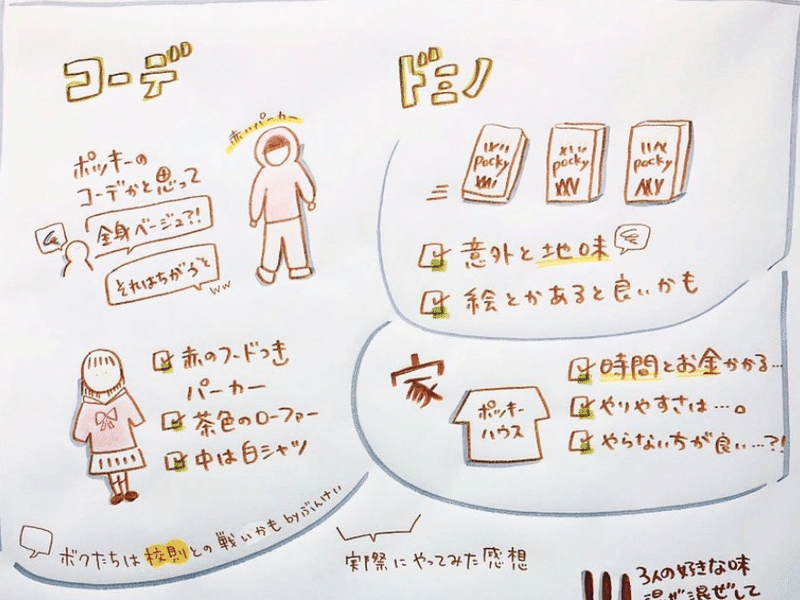 コーデ
赤いパーカー
ポッキーの
コーデかと思って
全身ベージュ?!
それはちがうぞ
ww
赤のフードつき
パーカー
茶色のローファー
中は白シャツ
ボクたちは校則との戦いかも byぶんけい
ドミノ
pocky
pocky
pocky
意外と地味
絵とかあると良いかも
家
ポッキー
ハウス
時間とお金かかる…
やりやすさは…。
やらない方が良い…?!
実際にやってみた感想
3人の好きな味
混ぜして